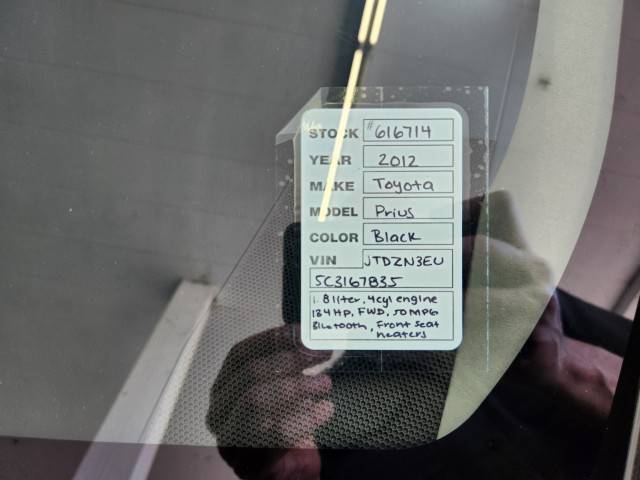 STOCK #616714
YEAR 2012
MAKE Toyota
MODEL Prius
COLOR Black
VIN JTDZN3EU
5C3167835
1.8 liter, 4cyl engine
134 HP, FWD, 50 MPG
Bluetooth, Front seat
heaters